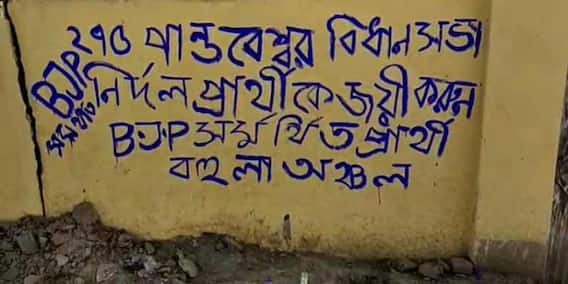 ২৭৫ পান্ডবেশ্বর বিধানসভা
নির্দল প্রার্থীকে জয়ী করুন
BJP সমর্থিত প্রার্থী
বহুলা অঞ্চল
BJP